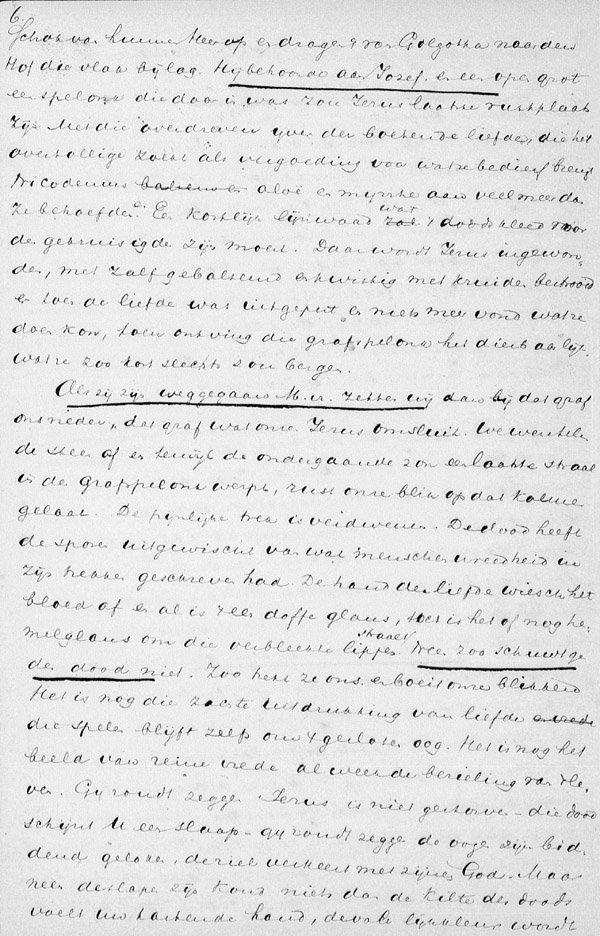 6.
Schat van hunne Heer op en dragen 't van Golgotha naar den
Hof die vlak bij lag. Hij behoorde aan Jozef, en een open grot
een spelonk die daar in was zou Jezus laatste rustplaats
zijn. Met die overdreven ijver der boetende liefde, die het
overtollige zoekt als vergoeding voor wat ze bedierf brengt
Nicodemus aloë en myrrhe aan veel meer dan
ze behoefden. Een kostlijk lijnwaad wat 't doodskleed voor
de gekruisigde zijn moest. Daar wordt Jezus ingewon
den, met zalf gebalsemd en kwistig met kruiden bestrooid
en toen de liefde was uitgeput en niets meer vond wat ze
doen kon, toen ontving die grafspelonk het dierbaar lijk
wat ze zoo kort slechts zou bergen.
Als zij zijn weggegaan M. vr. zetten wij dan bij dat graf
ons neder, dat graf wat onze Jezus omsluit. We wentelen
de steen af en terwijl de ondergaande zon een laatste straal
in de grafspelonk werpt, rust onze blik op dat kalme
gelaat. De pijnlijke trek is verdwenen. De dood heeft
de sporen uitgewischt van wat menschen wreedheid in
zijn trekken geschreven had. De hand der liefde wiesch het
bloed af en al is 't een doffe glans, het is het of nog he-
melglans om die verbleekte lippen straalt. Neen zoo schuwt ge
de dood niet. Zoo hebt ze ons en boeit onze blikken
Het is nog die zachte uitdrukking van liefde
die spelen blijft zelfs om 't gesloten oog. Het is nog het
beeld van reine vrede al week de bezieling van 't le-
ven. Gij zoudt zeggen Jezus is niet gestorven - die dood
schijnt U een slaap - gij zoudt zeggen de oogen zijn bid-
dend geloken, de ziel verkeert met zijnen God. Maar
neen de slaper zijn kond niets dan de kilte des doods
voelt uw tastende hand, de vale lijkkleur wordt